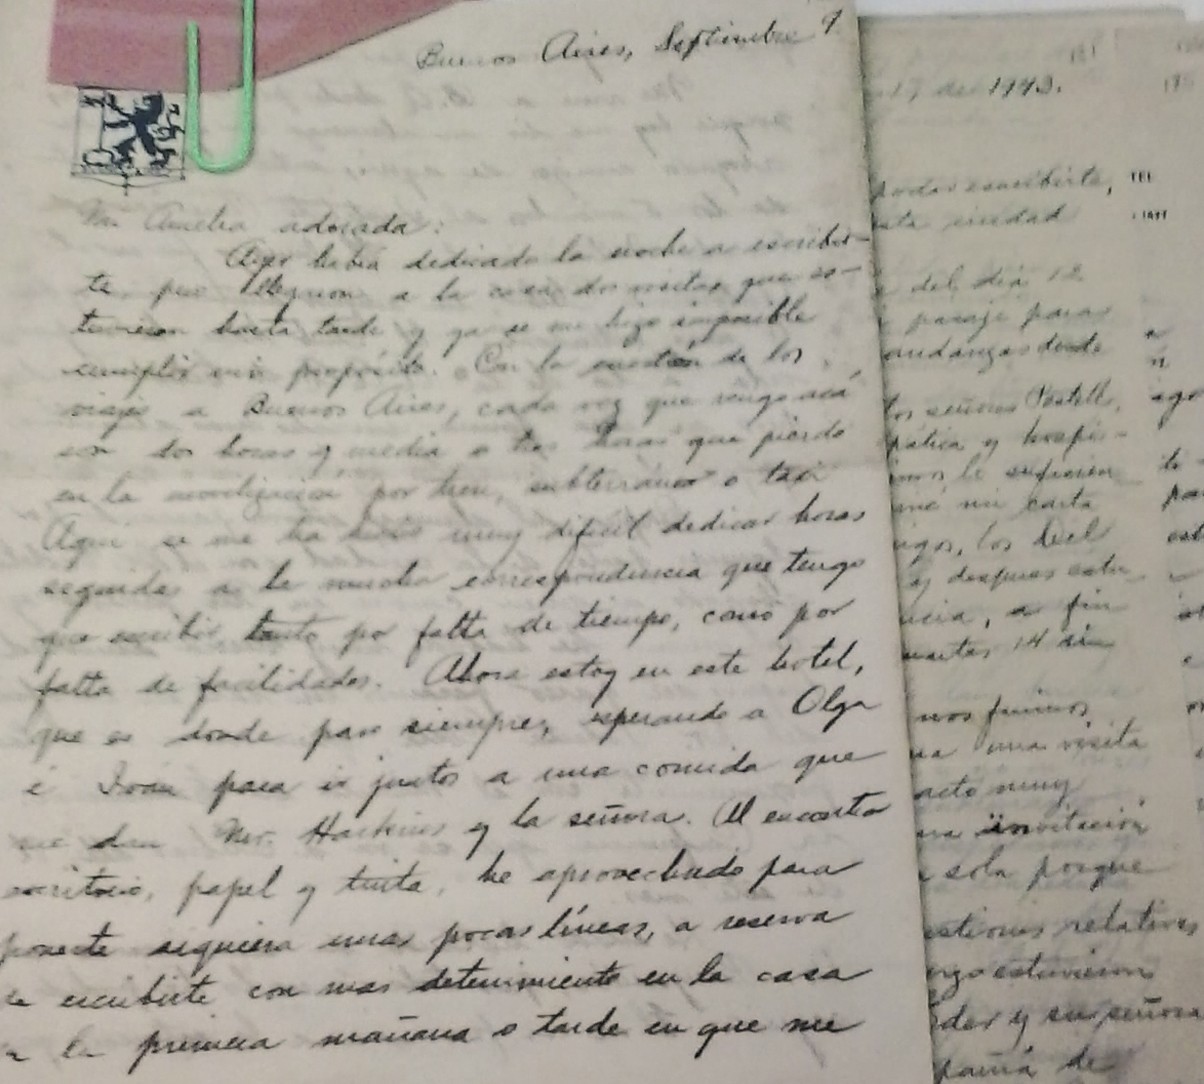 Buenos Aires, Septiembre 9
Mi Amelia adorada:
Ayer había dedicado la noche a escribir-
te, pero llegaron a la casa dos visitas que es-
tuvieron hasta tarde y ya se me hizo imposible
cumplir mi propósito. Con la cuestión de los
viajes a Buenos Aires, cada vez que vengo acá
son dos horas y media o tres horas que pierdo
en la movilización por tren, subterráneo o taxi
Aquí se me ha hecho muy dificil dedicar horas
seguidas a la mucha correspondencia que tengo
que escribir tanto por falta de tiempo, como por
falta de facilidades. Ahora estoy en este hotel,
que es donde paro siempre, esperando a Olga
é Iván para ir juntos a una comida que
me dan Mr. Harkins y la señora. Al encontrar
escritorio, papel y tinta, he aprovechado para
ponerte siquiera unas pocas líneas, a reserva
de escribirte con mas detenimiento en la casa
a la primera mañana o tarde en que me
17 de 1943.
poder escribirte,
esta ciudad
del día 12
pasaje para
mudanzas desde
los señores
pática y hospi-
mos le
mi carta
igos, los Del
y despues
cia, a fin
14
nos fuimos
una visita
acto muy
invitación
sola porque
estiones relativas
estuvieron
der y su señora
pañía de